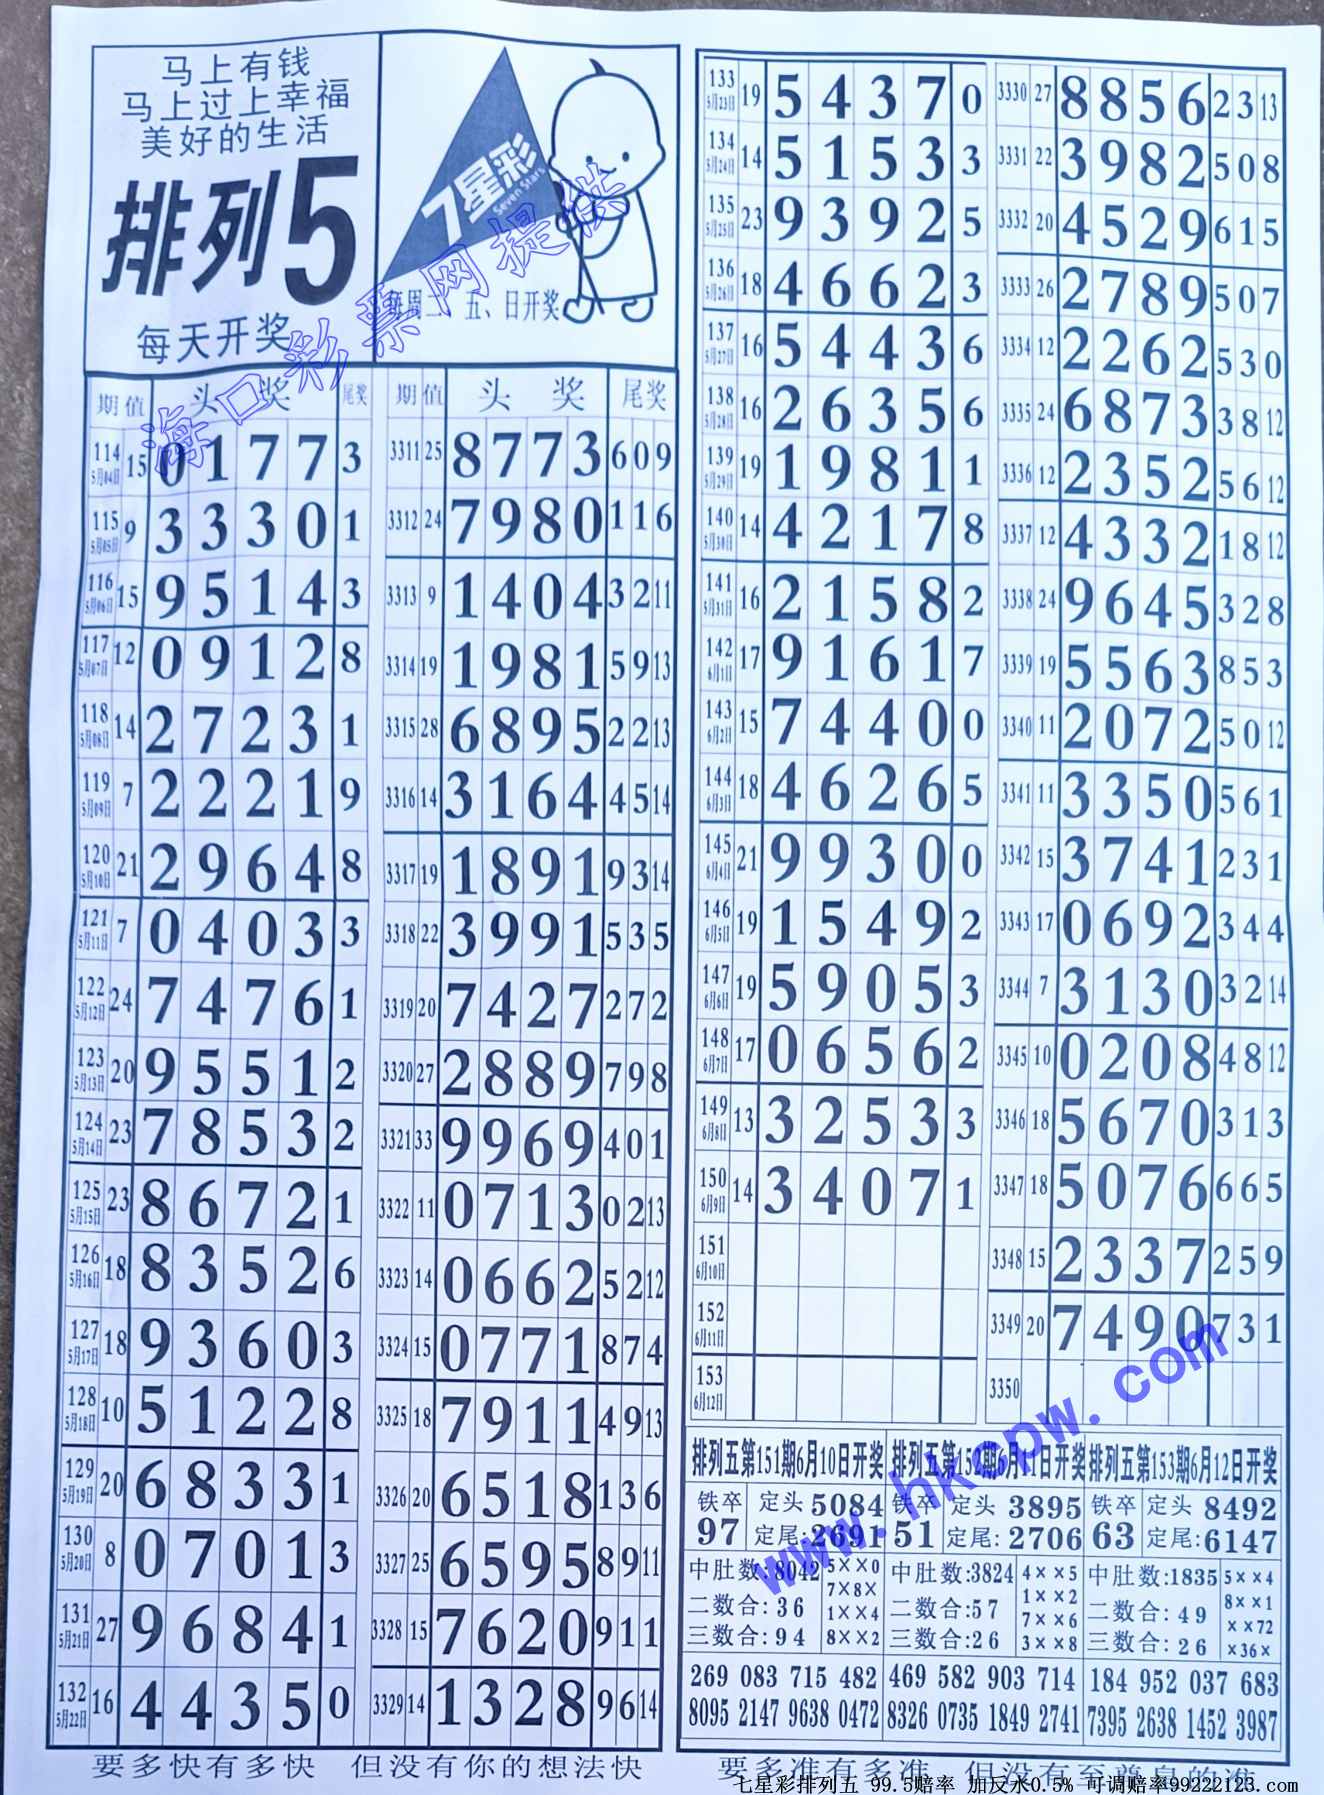 马上有钱
马上过上幸福
美好的生活
排列5
每天开奖
7星彩
Seven Stars
每周二 五、日开奖
海口彩票网提供
期 值 头 奖 尾奖
114 5月04日 15 0 1 7 7 3
115 5月05日 9 3 3 3 0 1
116 5月06日 15 9 5 1 4 3
117 5月07日 12 0 9 1 2 8
118 5月08日 14 2 7 2 3 1
119 5月09日 7 2 2 2 1 9
120 5月10日 21 2 9 6 4 8
121 5月11日 7 0 4 0 3 3
122 5月12日 24 7 4 7 6 1
123 5月13日 20 9 5 5 1 2
124 5月14日 23 7 8 5 3 2
125 5月15日 23 8 6 7 2 1
126 5月16日 18 8 3 5 2 6
127 5月17日 18 9 3 6 0 3
128 5月18日 10 5 1 2 2 8
129 5月19日 20 6 8 3 3 1
130 5月20日 8 0 7 0 1 3
131 5月21日 27 9 6 8 4 1
132 5月22日 16 4 4 3 5 0
期 值 头 奖 尾奖
3311 25 8 7 7 3 6 0 9
3312 24 7 9 8 0 1 1 6
3313 9 1 4 0 4 3 2 11
3314 19 1 9 8 1 5 9 13
3315 28 6 8 9 5 2 2 13
3316 14 3 1 6 4 4 5 14
3317 19 1 8 9 1 9 3 14
3318 22 3 9 9 1 5 3 5
3319 20 7 4 2 7 2 7 2
3320 27 2 8 8 9 7 9 8
3321 33 9 9 6 9 4 0 1
3322 11 0 7 1 3 0 2 13
3323 14 0 6 6 2 5 2 12
3324 15 0 7 7 1 8 7 4
3325 18 7 9 1 1 4 9 13
3326 20 6 5 1 8 1 3 6
3327 25 6 5 9 5 8 9 11
3328 15 7 6 2 0 9 1 1
3329 14 1 3 2 8 9 6 14
要多快有多快 但没有你的想法快
133 5月23日 19 5 4 3 7 0
134 5月24日 14 5 1 5 3 3
135 5月25日 23 9 3 9 2 5
136 5月26日 18 4 6 6 2 3
137 5月27日 16 5 4 4 3 6
138 5月28日 16 2 6 3 5 6
139 5月29日 19 1 9 8 1 1
140 5月30日 14 4 2 1 7 8
141 5月31日 16 2 1 5 8 2
142 6月1日 17 9 1 6 1 7
143 6月2日 15 7 4 4 0 0
144 6月3日 18 4 6 2 6 5
145 6月4日 21 9 9 3 0 0
146 6月5日 19 1 5 4 9 2
147 6月6日 19 5 9 0 5 3
148 6月7日 17 0 6 5 6 2
149 6月8日 13 3 2 5 3 3
150 6月9日 14 3 4 0 7 1
151 6月10日
152 6月11日
153 6月12日
3330 27 8 8 5 6 2 3 13
3331 22 3 9 8 2 5 0 8
3332 20 4 5 2 9 6 1 5
3333 26 2 7 8 9 5 0 7
3334 12 2 2 6 2 5 3 0
3335 24 6 8 7 3 3 8 12
3336 12 2 3 5 2 5 6 12
3337 12 4 3 3 2 1 8 12
3338 24 9 6 4 5 3 2 8
3339 19 5 5 6 3 8 5 3
3340 11 2 0 7 2 5 0 12
3341 11 3 3 5 0 5 6 1
3342 15 3 7 4 1 2 3 1
3343 17 0 6 9 2 3 4 4
3344 7 3 1 3 0 3 2 14
3345 10 0 2 0 8 4 8 12
3346 18 5 6 7 0 3 1 3
3347 18 5 0 7 6 6 6 5
3348 15 2 3 3 7 2 5 9
3349 20 7 4 9 0 7 3 1
3350
排列五第151期6月10日开奖
铁卒 97 定头 5084
定尾:2691
中肚数:8042
二数合:36
三数合:94
5××0
7×8×
1××4
8××2
269 083 715 482
8095 2147 9638 0472
排列五第152期6月11日开奖
铁卒 51 定头 3895
定尾:2706
中肚数:3824
二数合:57
三数合:26
4××5
1××2
7××6
3××8
469 582 903 714
8326 0735 1849 2741
排列五第153期6月12日开奖
铁卒 63 定头 8492
定尾:6147
中肚数:1835
二数合:49
三数合:26
5××4
8××1
××72
×36×
184 952 037 683
7395 2638 1452 3987
www.hkcpw.com
要多准有多准 但没有至尊皇的准
七星彩排列五 99.5赔率 加反水0.5% 可调赔率99222123.com